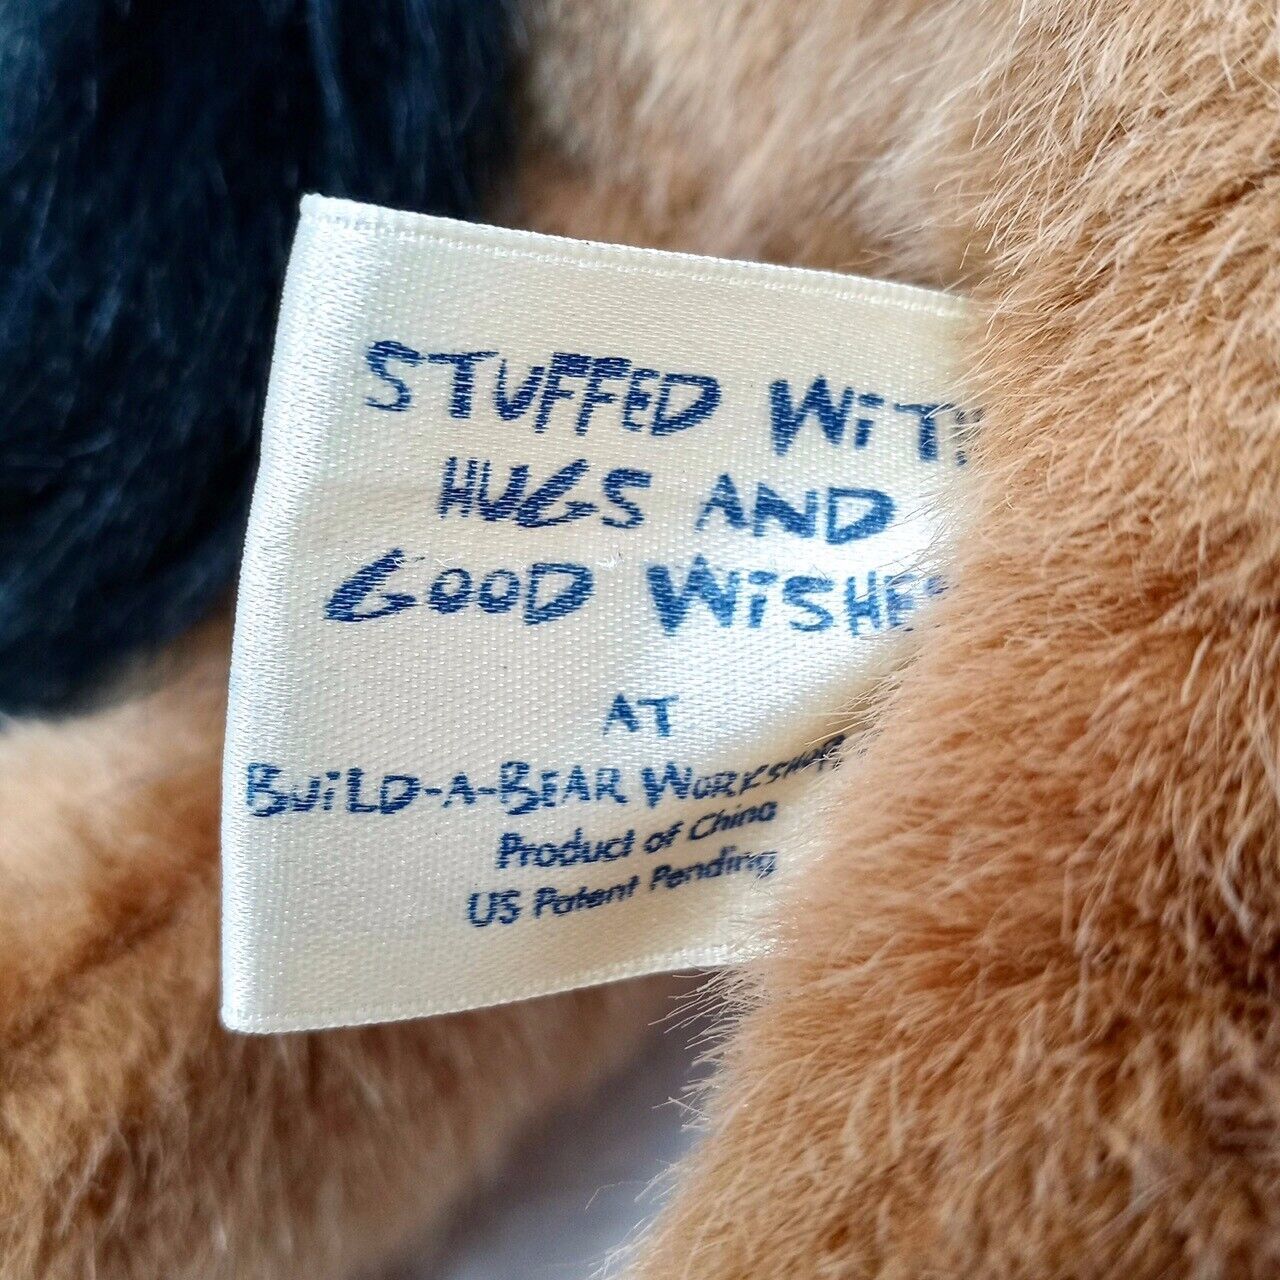 STUFFED WITH
HUGS AND
GOOD WISHES
AT
BUiLD-A-BEAR WORKSHOP
Product of China
US Patent Pending